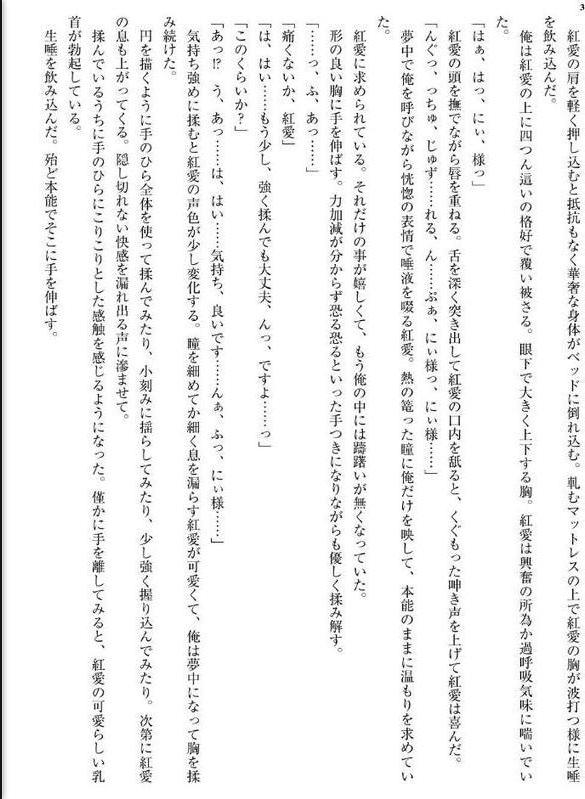 3
紅愛の肩を軽く押し込むと抵抗もなく華奢な身体がベッドに倒れ込む。軋むマットレスの上で紅愛の胸が波打つ様に生唾
を飲み込んだ。
俺は紅愛の上に四つん這いの格好で覆い被さる。眼下で大きく上下する胸。紅愛は興奮の所為か過呼吸気味に喘いでい
た。
「はぁ、はっ、にぃ、様っ」
紅愛の頭を撫でながら唇を重ねる。舌を深く突き出して紅愛の口内を舐ると、くぐもった呻き声を上げて紅愛は喜んだ。
「んぐっ、っちゅ、じゅず……れる、ん……ぷぁ、にぃ様っ、にぃ様……」
夢中で俺を呼びながら恍惚の表情で唾液を啜る紅愛。熱の篭った瞳に俺だけを映して、本能のままに温もりを求めてい
た。
紅愛に求められている。それだけの事が嬉しくて、もう俺の中には躊躇いが無くなっていた。
形の良い胸に手を伸ばす。力加減が分からず恐る恐るといった手つきになりながらも優しく揉み解す。
「……っ、ふ、あっ……」
「痛くないか、紅愛」
「は、はい……もう少し、強く揉んでも大丈夫、んっ、ですよ……っ」
「このくらいか?」
「あっ!? う、あっ……は、はい……気持ち、良いです……んぁ、ふっ、にぃ様……」
気持ち強めに揉むと紅愛の声色が少し変化する。瞳を細めてか細く息を漏らす紅愛が可愛くて、俺は夢中になって胸を揉
み続けた。
円を描くように手のひら全体を使って揉んでみたり、小刻みに揺らしてみたり、少し強く握り込んでみたり。次第に紅愛
の息も上がってくる。隠し切れない快感を漏れ出る声に滲ませて。
揉んでいるうちに手のひらにこりこりとした感触を感じるようになった。僅かに手を離してみると、紅愛の可愛らしい乳
首が勃起している。
生唾を飲み込んだ。殆ど本能でそこに手を伸ばす。